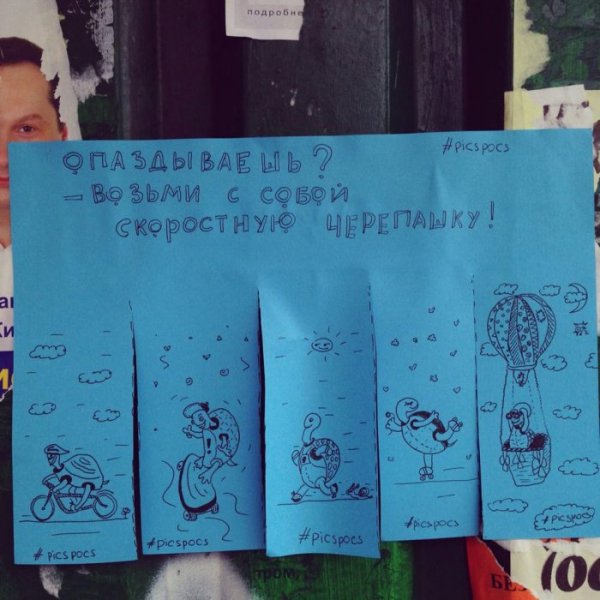 подробне
#picspocs
ОПАЗДЫВАЕШЬ?
– ВОЗЬМИ С СОБОЙ
СКОРОСТНУЮ ЧЕРЕПАШКУ!
#picspocs
#picspocs
#picspocs
#picspocs
#picspocs
пром,
100